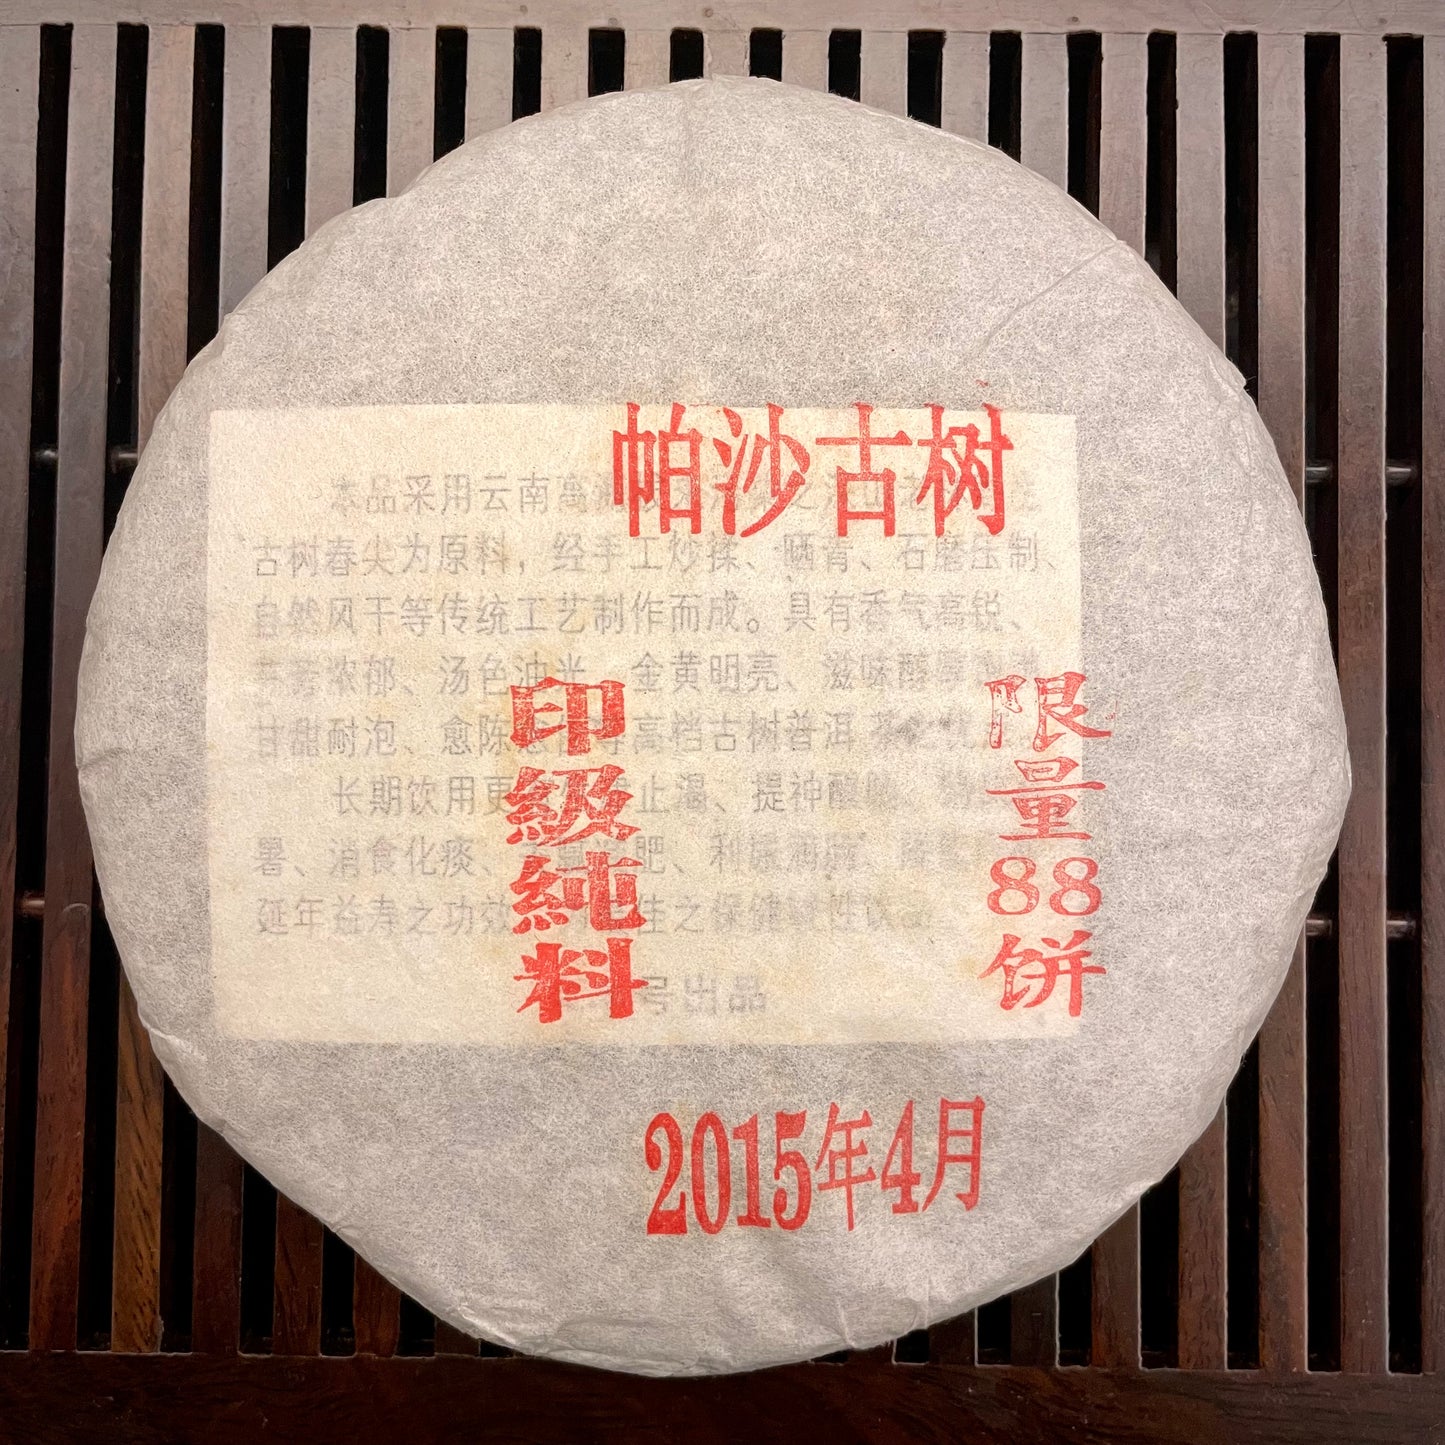 帕沙古树
本品采用云南高
古树春尖为原料，经手工炒揉、晒青、石磨压制、
自然风干等传统工艺制作而成。具有香气高锐、
芬芳浓郁、汤色油光、金黄明亮、滋味醇厚
甘甜耐泡、愈陈愈 等高档古树普洱茶之
长期饮用更 止渴、提神醒
暑、消食化痰、 肥、利 
延年益寿之功效 佳之保健 性饮
号出品
印级纯料
限量88饼
2015年4月